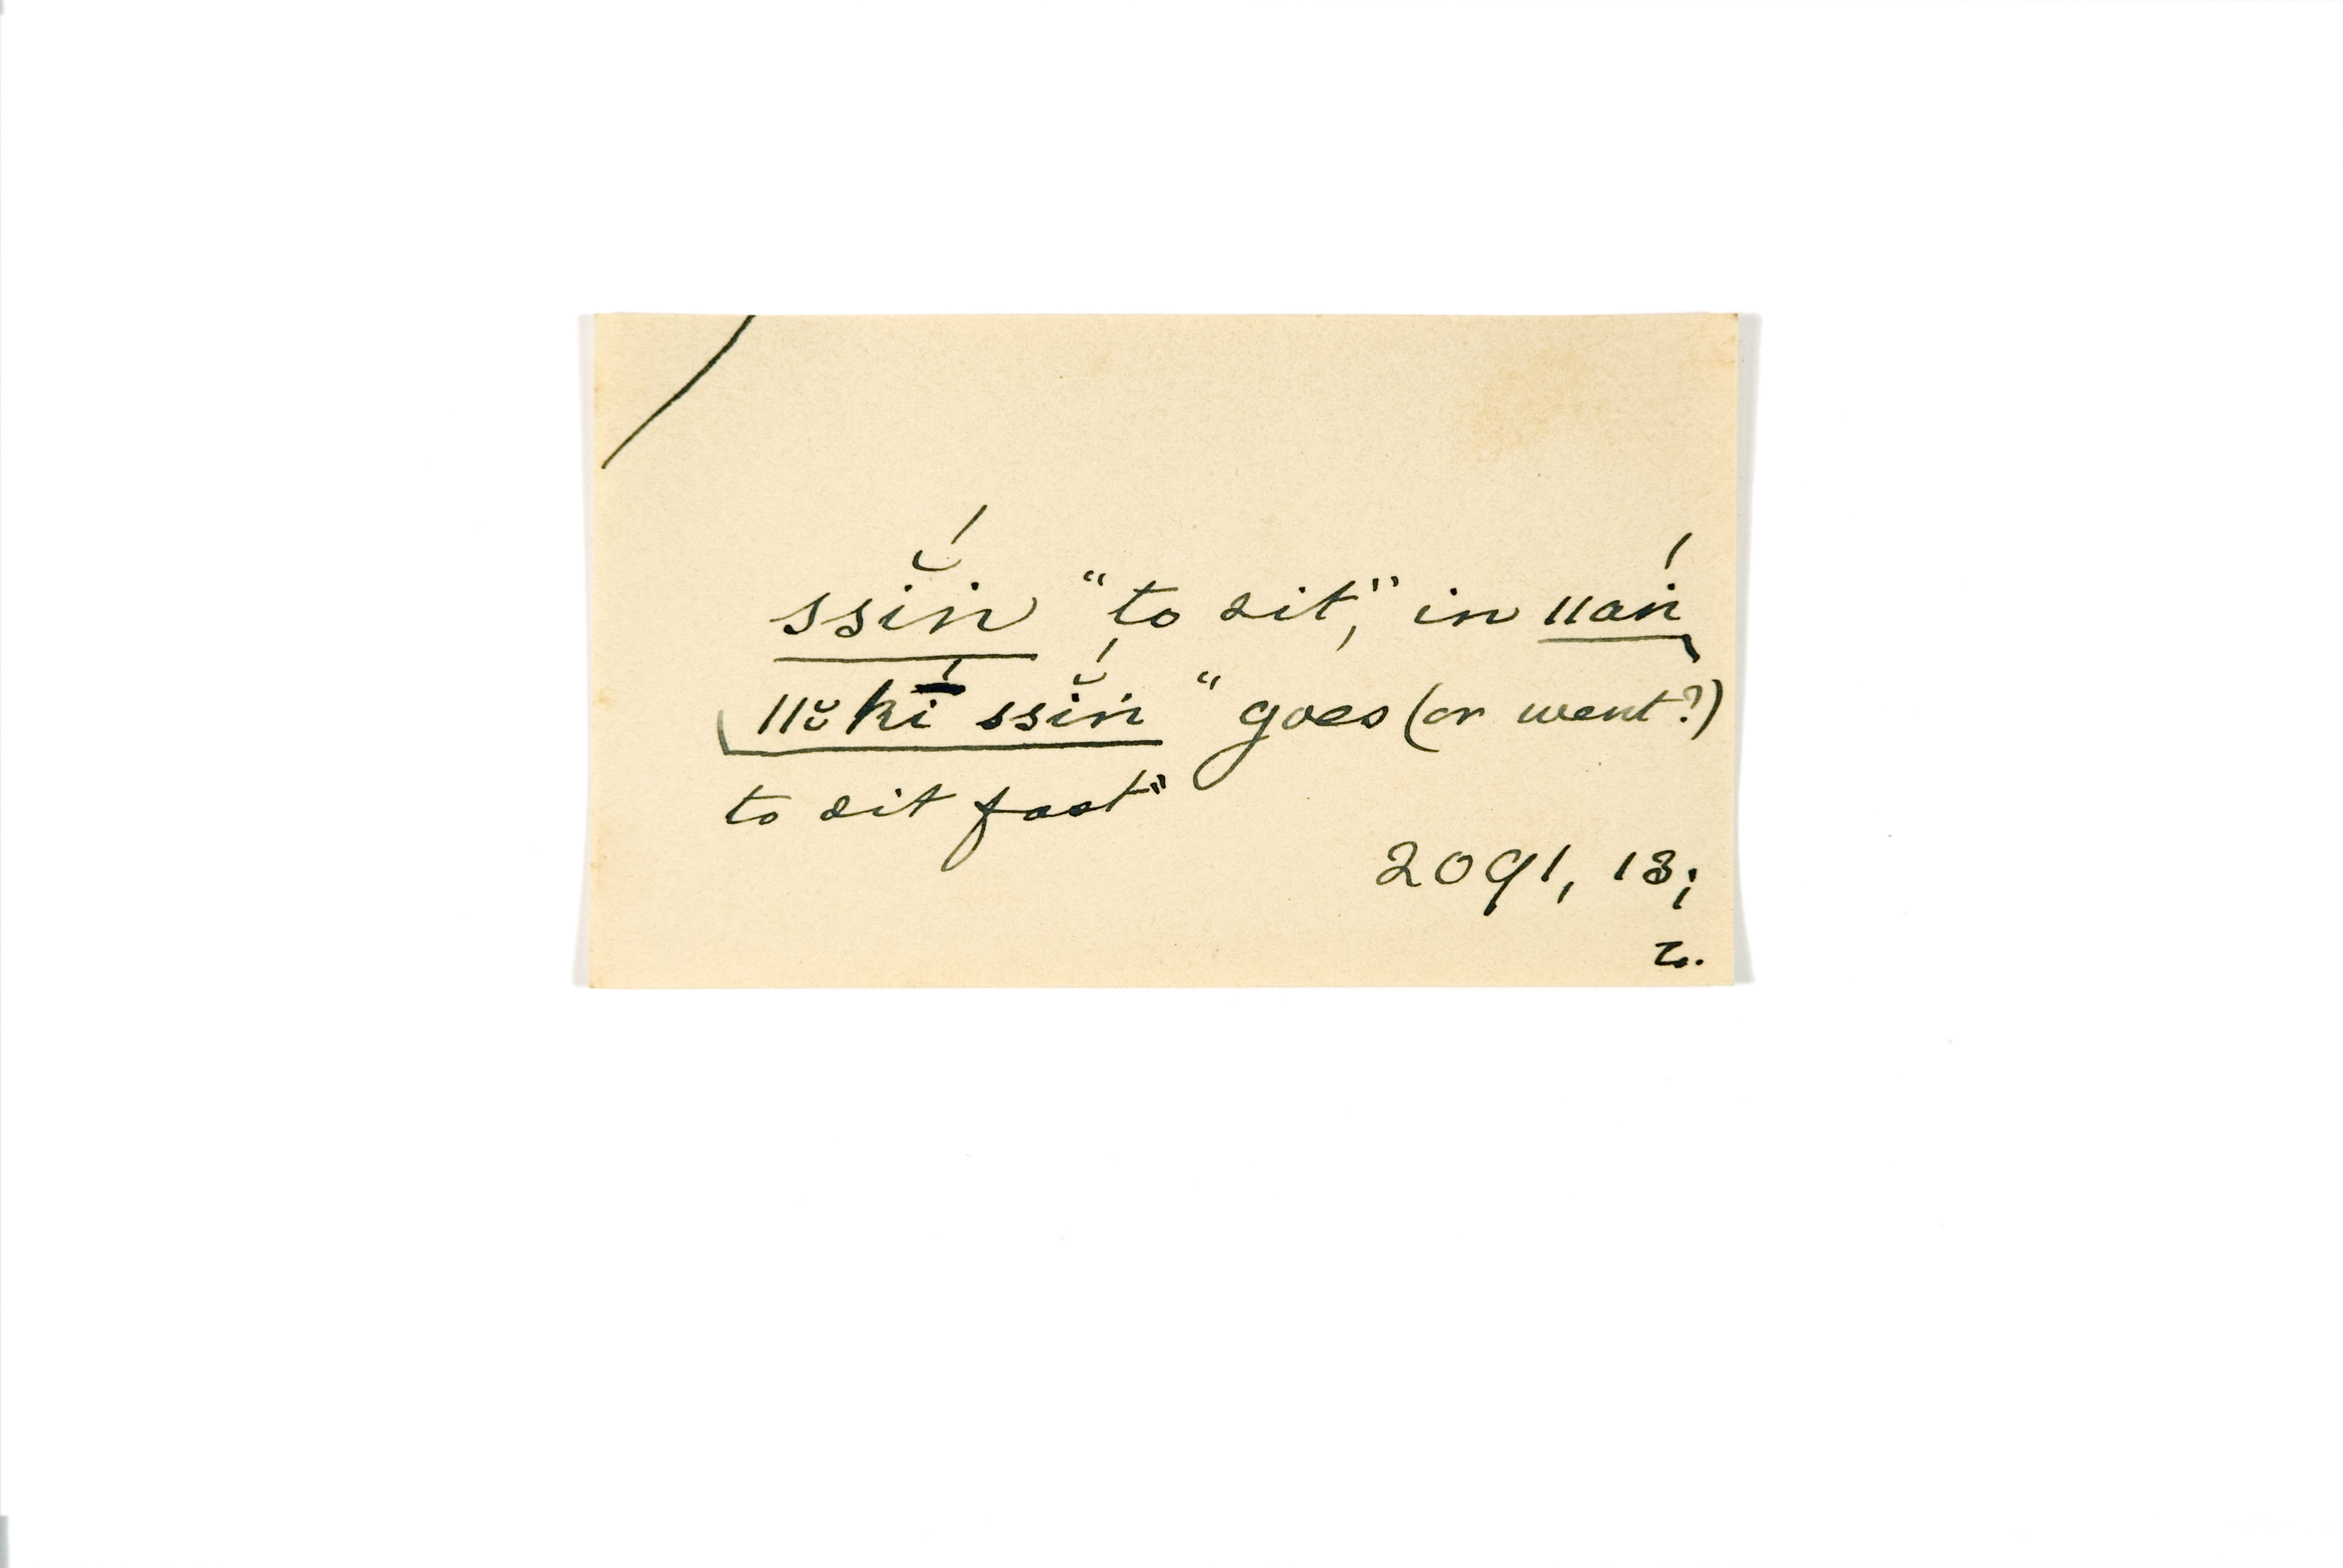 ssĭń "to sit," in ǁań
ǁŭkī́ ssĭ́ṅ "goes (or went?)
to sit fast"
2091, 13;